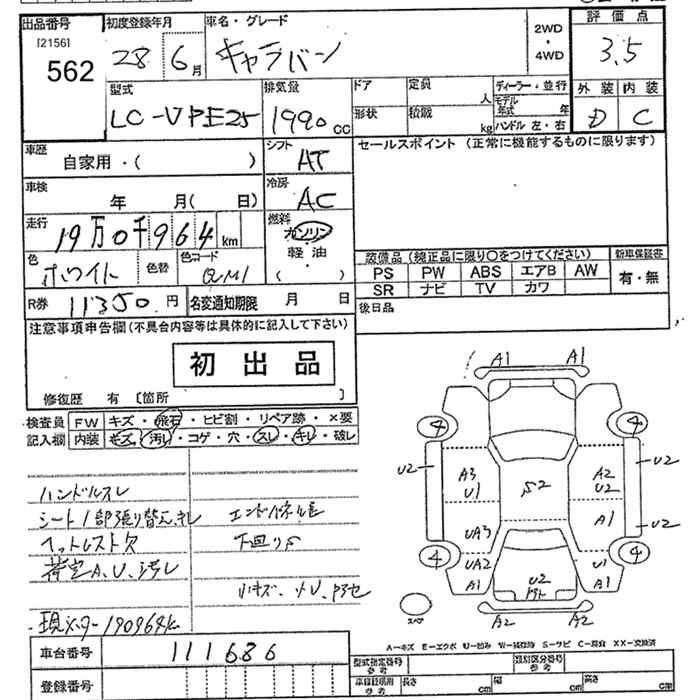 出品番号
[2156]
562
初度登録年月
28 6月
車名・グレード
キャラバン
2WD
・
4WD
評価点
3.5
外装 内装
D C
型式
LC-VPE25
排気量
1990 CC
ドア
形状
定員
人
積載
kg
ディーラー・並行
モデル年式 年
ハンドル 左・右
車歴
自家用・( )
シフト
AT
セールスポイント (正常に機能するものに限ります)
車検
年 月( 日)
冷房
AC
走行
19万0千964km
燃料
ガソリン
軽油
( )
色
ホワイト
色替
色コード
QM1
装備品 (純正品に限り〇をつけてください)
PS PW ABS エアB AW
SR ナビ TV カワ
新車保証書
有・無
R券
11350円
名変通知期限 月 日
後日品
注意事項申告欄(不具合内容等は具体的に記入して下さい)
初出品
修復歴 有 [箇所 ]
検査員記入欄
FW キズ・飛石・ヒビ割・リペア跡・×要
内装 キズ・汚レ・コゲ・穴・スレ・キレ・破レ
ハンドルスレ
シート1部張り替え、キレ
ヘットレスト欠
荷室A、U、汚レ
現メーター190964k
下回りS
A1 A1
4 4
U2 U2
A3 U1
S2
A2 U2
A1
U2
UA3
4 4
UA2 A1
U2
U1 A1
A2 A2
スペア
A-キズ E-エクボ U-凹み W-補修跡 S-サビ C-腐食 XX-交換済
車台番号
111686
登録番号
型式指定番号 参考
類別区分番号 参考
車検証明用 参考
長さ cm
幅 cm
高さ cm